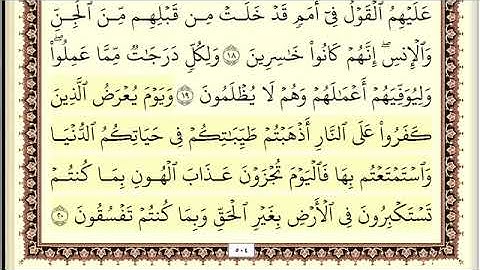 عَلَيْهِمُ ٱلْقَوْلُ فِىٓ أُمَمٍ قَدْ خَلَتْ مِن قَبْلِهِم مِّنَ ٱلْجِنِّ
وَٱلْإِنسِ ۖ إِنَّهُمْ كَانُوا۟ خَـٰسِرِينَ ١٨ وَلِكُلٍّ دَرَجَـٰتٌ مِّمَّا عَمِلُوا۟ ۖ
وَلِيُوَفِّيَهُمْ أَعْمَـٰلَهُمْ وَهُمْ لَا يُظْلَمُونَ ١٩ وَيَوْمَ يُعْرَضُ ٱلَّذِينَ
كَفَرُوا۟ عَلَى ٱلنَّارِ أَذْهَبْتُمْ طَيِّبَـٰتِكُمْ فِى حَيَاتِكُمُ ٱلدُّنْيَا
وَٱسْتَمْتَعْتُم بِهَا فَٱلْيَوْمَ تُجْزَوْنَ عَذَابَ ٱلْهُونِ بِمَا كُنتُمْ
تَسْتَكْبِرُونَ فِى ٱلْأَرْضِ بِغَيْرِ ٱلْحَقِّ وَبِمَا كُنتُمْ تَفْسُقُونَ ٢٠
٥٠٤